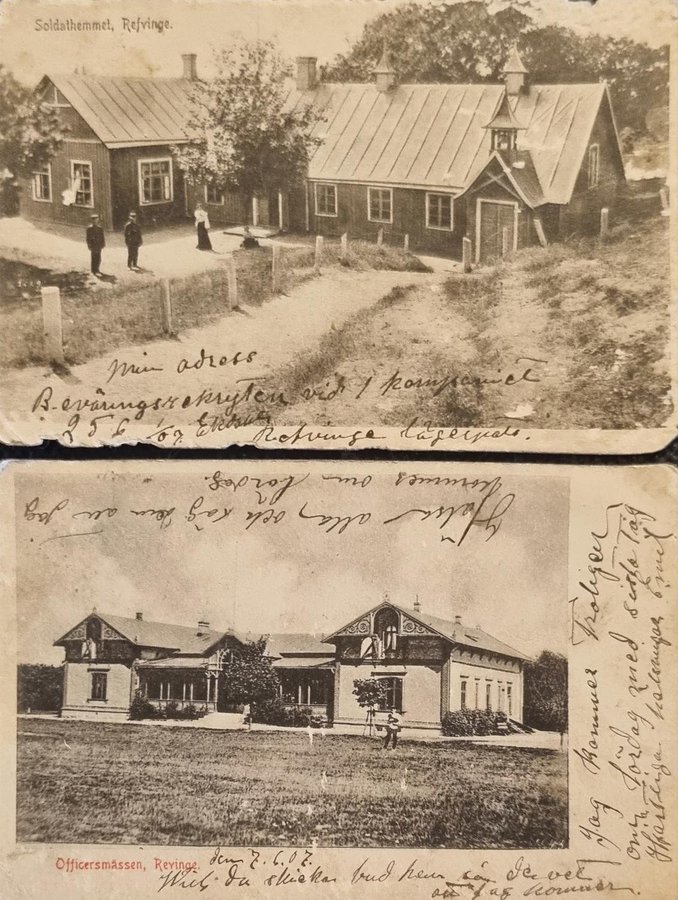 Soldathemmet, Refvinge.
Min adress
Beväringsrekryten vid 1 kompaniet
Refvinge lägerpl.
Hälsa alla, och säg dem att jag
kommer om lördag.
Jag kommer troligen
om lördag med sista tåg
Hjärtliga hälsningar Emil
Officersmässen, Revinge.
den 7.6.07.
Will du skicka bud hem så de vet
att jag kommer.